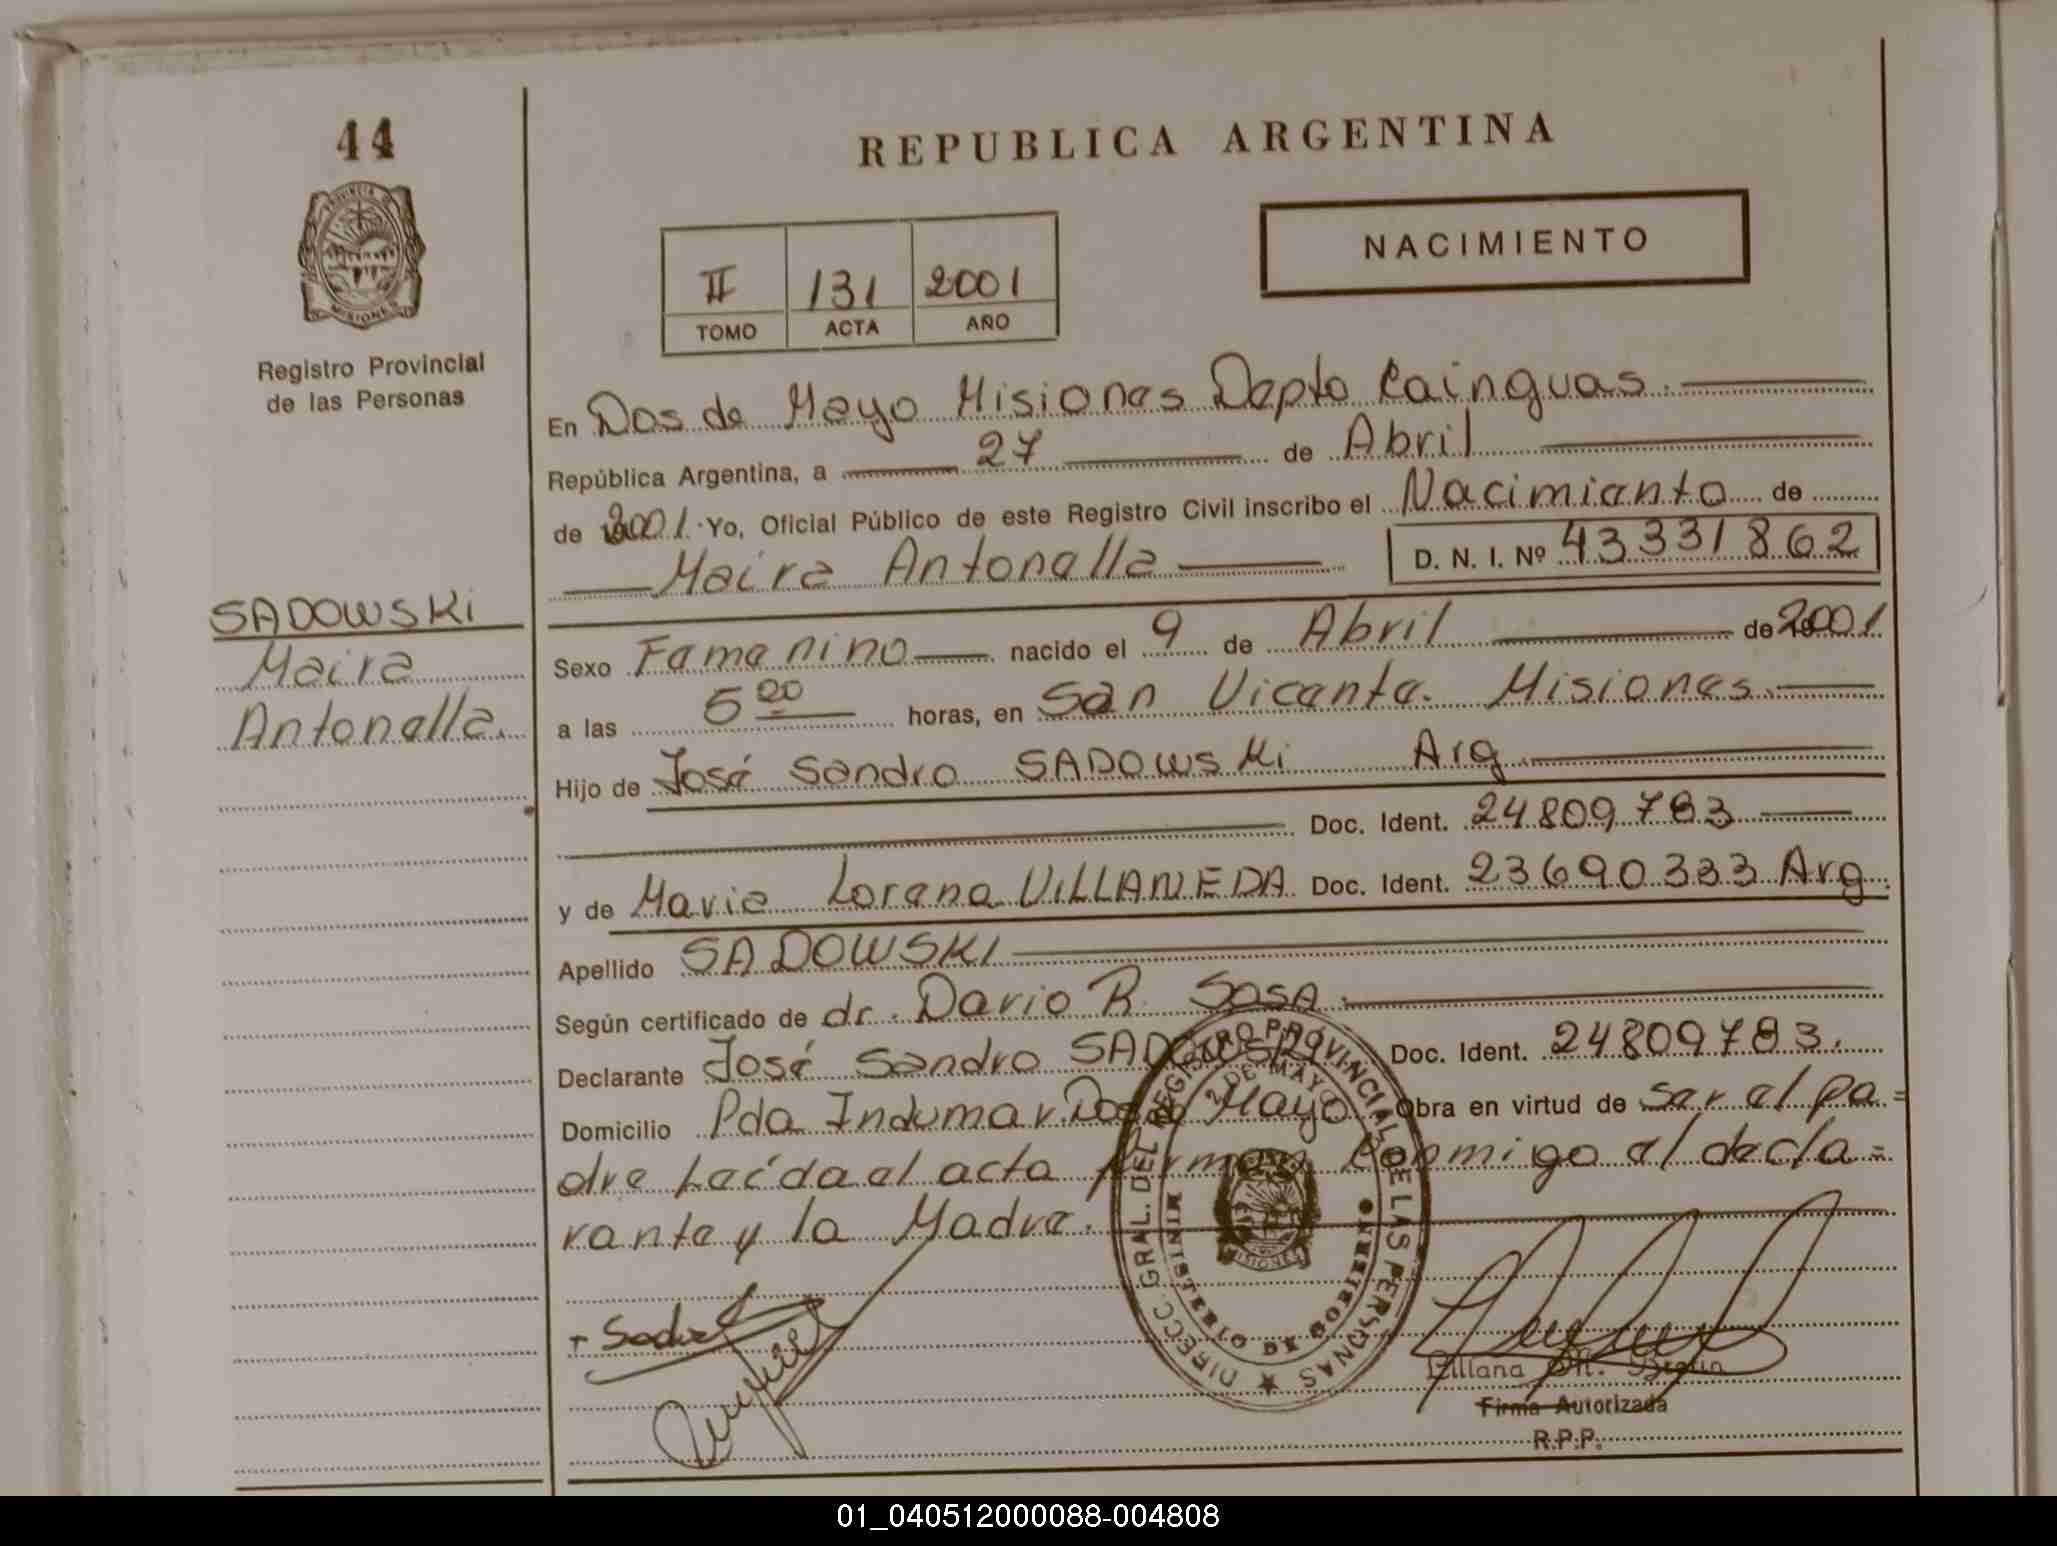 44
REPUBLICA ARGENTINA
PROVINCIA DE
MISIONES
Registro Provincial
de las Personas
NACIMIENTO
II 131 2001
TOMO ACTA AÑO
En Dos de Mayo Misiones Depto Cainguas.
República Argentina, a 27 de Abril
de 2001. Yo, Oficial Público de este Registro Civil inscribo el Nacimiento de
Maira Antonella D. N. I. Nº 43331862
SADOWSKi
Maira
Antonella.
Sexo Femenino nacido el 9 de Abril de 2001
a las 5 20 horas, en San Vicente. Misiones.
Hijo de José Sandro SADOWSKi Arg
Doc. Ident. 24809783
y de Maria Lorena ViLLANEDA Doc. Ident. 23690333 Arg.
Apellido SADOWSKI
Según certificado de dr. Dario R. SOSA.
Declarante José Sandro SADOWSKI Doc. Ident. 24809783.
Domicilio Pda Indumar Dos de Mayo Obra en virtud de ser el pa=
dre Leída el acta firman Conmigo el decla=
rante y la Madre.
DIRECC. GRAL. DEL REGISTRO PROVINCIAL DE LAS PERSONAS
2 DE MAYO
MINISTERIO DE GOBIERNO
MISIONES
Liliana
Firma Autorizada
R.P.P.
01_040512000088-004808